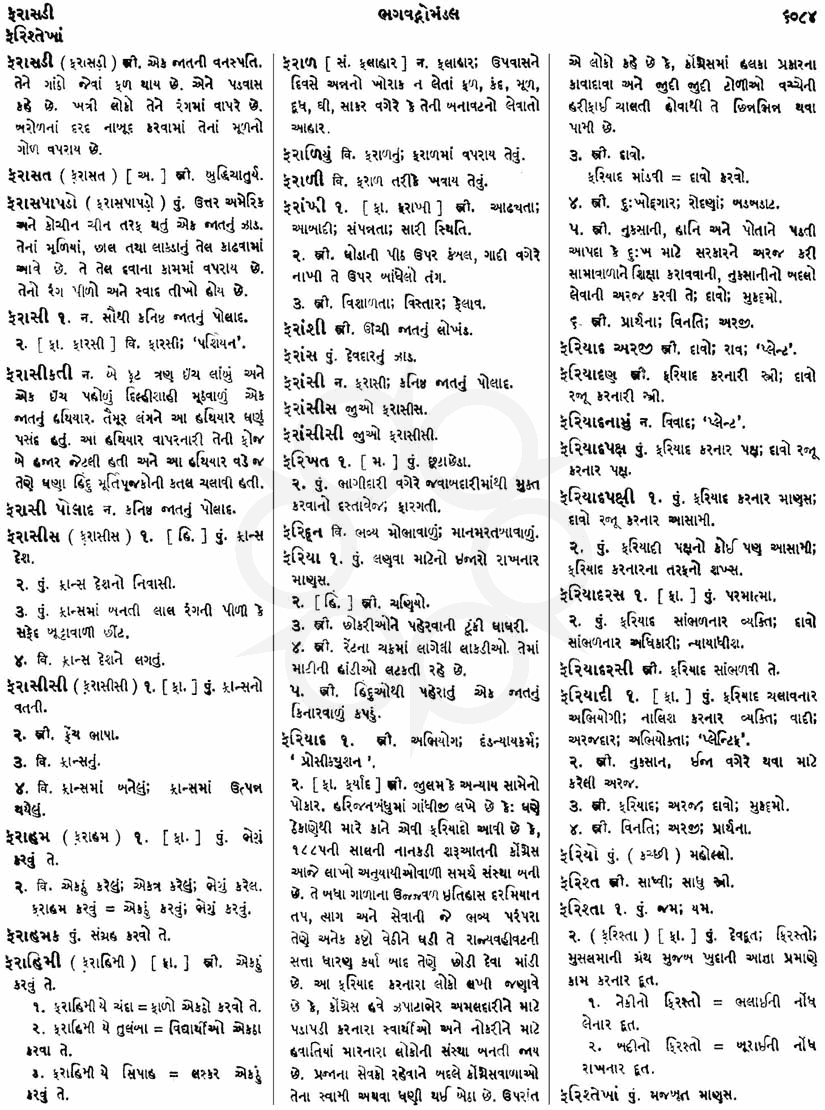 ફરાસડી
ભગવદ્ગોમંડલ
૬૦૮૪
ફરિશ્તેખાં
ફરાસડી ( ફરાસડ઼ી ) સ્ત્રી. એક જાતની વનસ્પતિ.
તેને ગાંઠો જેવાં ફળ થાય છે. એને પડવાસ
કહે છે. ખત્રી લોકો તેને રંગમાં વાપરે છે.
બરોળનાં દરદ નાબૂદ કરવામાં તેનાં મૂળનો
ગોળ વપરાય છે.
ફરાસત ( ફ઼રાસત ) [ અ. ] સ્ત્રી. બુદ્ધિચાતુર્ય.
ફરાસપાપડો ( ફરાસપાપડ઼ો ) પું. ઉત્તર અમેરિકા
અને કોચીન ચીન તરફ થતું એક જાતનું ઝાડ.
તેનાં મૂળિયાં, છાલ તથા લાકડાનું તેલ કાઢવામાં
આવે છે. તે તેલ દવાના કામમાં વપરાય છે.
તેનો રંગ પીળો અને સ્વાદ તીખો હોય છે.
ફરાસી ૧. ન. સૌથી કનિષ્ઠ જાતનું પોલાદ.
૨. [ ફા. ફારસી ] વિ. ફારસી; ‘પર્શિયન’.
ફરાસીકતી ન. બે ફૂટ ત્રણ ઇંચ લાંબું અને
એક ઇંચ પહોળું દિલ્હીશાહી મૂઠવાળું એક
જાતનું હથિયાર. તૈમૂર લંગને આ હથિયાર ઘણું
પસંદ હતું. આ હથિયાર વાપરનારી તેની ફોજ
બે હજાર જેટલી હતી અને આ હથિયાર વડે જ
તેણે ઘણા હિંદુ મૂર્તિપૂજકોની કતલ ચલાવી હતી.
ફરાસી પોલાદ ન. કનિષ્ઠ જાતનું પોલાદ.
ફરાસીસ ( ફ઼રાસીસ ) ૧. [ હિં. ] પું. ફ્રાન્સ
દેશ.
૨. પું. ફ્રાન્સ દેશનો નિવાસી.
૩. પું. ફ્રાન્સમાં બનતી લાલ રંગની પીળી કે
સફેદ બૂટ્ટાવાળી છીંટ.
૪. વિ. ફ્રાન્સ દેશને લગતું.
ફરાસીસી ( ફ઼રાસીસી ) ૧. [ ફા. ] પું. ફ્રાન્સનો
વતની.
૨. સ્ત્રી. ફ્રેંચ ભાષા.
૩. વિ. ફ્રાન્સનું.
૪. વિ. ફ્રાન્સમાં બનેલું; ફ્રાન્સમાં ઉત્પન્ન
થયેલું.
ફરાહમ ( ફ઼રાહમ ) ૧. [ ફા. ] પું. ભેગું
કરવું તે.
૨. વિ. એકઠું કરેલું; એકત્ર કરેલું; ભેગું કરેલ.
ફરાહમ કરવું = એકઠું કરવું; ભેગું કરવું.
ફરાહમક પું. સંગ્રહ કરવો તે.
ફરાહિમી ( ફ઼રાહિમી ) [ ફા. ] સ્ત્રી. એકઠું
કરવું તે.
૧. ફરાહિમી યે ચંદા = ફાળો એકઠો કરવો તે.
૨. ફરાહિમી યે તુલબા = વિદ્યાર્થીઓ એકઠા
કરવા તે.
૩. ફરાહિમી યે સિપાહ = લશ્કર એકઠું
કરવું તે.
ફરાળ [ સં. ફલાહાર ] ન. ફલાહાર; ઉપવાસને
દિવસે અન્નનો ખોરાક ન લેતાં ફળ, કંદ, મૂળ,
દૂધ, ઘી, સાકર વગેરે કે તેની બનાવટનો લેવાતો
આહાર.
ફરાળિયું વિ. ફરાળનું; ફરાળમાં વપરાય તેવું.
ફરાળી વિ. ફરાળ તરીકે ખવાય તેવું.
ફરાંખી ૧. [ ફા. ફરાખી ] સ્ત્રી. આઢ્યતા;
આબાદી; સંપન્નતા; સારી સ્થિતિ.
૨. સ્ત્રી. ઘોડાની પીઠ ઉપર કંબલ, ગાદી વગેરે
નાખી તે ઉપર બાંધેલો તંગ.
૩. સ્ત્રી. વિશાળતા; વિસ્તાર; ફેલાવ.
ફરાંશી સ્ત્રી. ઊંચી જાતનું લોખંડ.
ફરાંસ પું. દેવદારનું ઝાડ.
ફરાંસી ન. ફરાસી; કનિષ્ઠ જાતનું પોલાદ.
ફરાંસીસ જુઓ ફરાસીસ.
ફરાંસીસી જુઓ ફરાસીસી.
ફરિખત ૧. [ મ. ] પું. છૂટાછેડા.
૨. પું. ભાગીદારી વગેરે જવાબદારીમાંથી મુક્ત
કરવાનો દસ્તાવેજ; ફારગતી.
ફરિદૂન વિ. ભવ્ય મોભાવાળું; માનમરતબાવાળું.
ફરિયા ૧. પું. લણવા માટેનો ઇજારો રાખનાર
માણસ.
૨. [ હિં. ] સ્ત્રી. ચણિયો.
૩. સ્ત્રી. છોકરીઓને પહેરવાની ટૂંકી ઘાઘરી.
૪. સ્ત્રી. રેંટના ચક્રમાં લાગેલી લાકડીઓ. તેમાં
માટીની હાંડીઓ લટકતી રહે છે.
૫. સ્ત્રી. હિંદુઓથી પહેરાતું એક જાતનું
કિનારવાળું કપડું.
ફરિયાદ ૧. સ્ત્રી. અભિયોગ; દંડન્યાયકર્મ;
‘ પ્રોસીક્યુશન ’.
૨. [ ફા. ફર્યાદ ] સ્ત્રી. જુલમ કે અન્યાય સામેનો
પોકાર. હરિજનબંધુમાં ગાંધીજી લખે છે કેઃ ઘણે
ઠેકાણેથી મારે કાને એવી ફરિયાદો આવી છે કે,
૧૮૮૫ની સાલની નાનકડી શરૂઆતની કોંગ્રેસ
આજે લાખો અનુયાયીઓવાળી સમર્થ સંસ્થા બની
છે. તે બધા ગાળાના ઉજ્જવળ ઇતિહાસ દરમિયાન
તપ, ત્યાગ અને સેવાની જે ભવ્ય પરંપરા
તેણે અનેક કષ્ટો વેઠીને ઘડી તે રાજ્યવહીવટની
સત્તા ધારણ કર્યા બાદ તેણે છોડી દેવા માંડી
છે. આ ફરિયાદ કરનારા લોકો લખી જણાવે
છે કે, કોંગ્રેસ હવે ઝપાટાભેર અમલદારીને માટે
પડાપડી કરનારા સ્વાર્થીઓ અને નોકરીને માટે
હવાતિયાં મારનારા લોકોની સંસ્થા બનતી જાય
છે. પ્રજાના સેવકો રહેવાને બદલે કોંગ્રેસવાળાઓ
તેના સ્વામી અથવા ધણી થઈ બેઠા છે. ઉપરાંત
એ લોકો કહે છે કે, કોંગ્રેસમાં હલકા પ્રકારના
કાવાદાવા અને જુદી જુદી ટોળીઓ વચ્ચેની
હરીફાઈ ચાલતી હોવાથી તે છિન્નભિન્ન થવા
પામી છે.
૩. સ્ત્રી. દાવો.
ફરિયાદ માંડવી = દાવો કરવો.
૪. સ્ત્રી. દુઃખોદ્ગાર; રોદણાં; બડબડાટ.
૫. સ્ત્રી. નુકસાની, હાનિ અને પોતાને પડતી
આપદા કે દુઃખ માટે સરકારને અરજ કરી
સામાવાળાને શિક્ષા કરાવવાની, નુકસાનીનો બદલો
લેવાની અરજ કરવી તે; દાવો; મુકદ્દમો.
૬. સ્ત્રી. પ્રાર્થના; વિનતિ; અરજી.
ફરિયાદ અરજી સ્ત્રી. દાવો; રાવ; ‘પ્લેન્ટ’.
ફરિયાદણ સ્ત્રી. ફરિયાદ કરનારી સ્ત્રી; દાવો
રજૂ કરનારી સ્ત્રી.
ફરિયાદનામું ન. વિવાદ; ‘પ્લેન્ટ’.
ફરિયાદપક્ષ પું. ફરિયાદ કરનાર પક્ષ; દાવો રજૂ
કરનાર પક્ષ.
ફરિયાદપક્ષી ૧. પું. ફરિયાદ કરનાર માણસ;
દાવો રજૂ કરનાર આસામી.
૨. પું. ફરિયાદી પક્ષનો કોઈ પણ આસામી;
ફરિયાદ કરનારના તરફનો શખ્સ.
ફરિયાદરસ ૧. [ ફા. ] પું. પરમાત્મા.
૨. પું. ફરિયાદ સાંભળનાર વ્યક્તિ; દાવો
સાંભળનાર અધિકારી; ન્યાયાધીશ.
ફરિયાદરસી સ્ત્રી. ફરિયાદ સાંભળવી તે.
ફરિયાદી ૧. [ ફા. ] પું. ફરિયાદ ચલાવનાર
અભિયોગી; નાલિશ કરનાર વ્યક્તિ; વાદી;
અરજદાર; અભિયોક્તા; ‘પ્લેન્ટિફ’.
૨. સ્ત્રી. નુકસાન, ઈજા વગેરે થવા માટે
કરેલી અરજ.
૩. સ્ત્રી. ફરિયાદ; અરજ; દાવો; મુકદ્દમો.
૪. સ્ત્રી. વિનતિ; અરજી; પ્રાર્થના.
ફરિયો પું. ( કચ્છી ) મહોલ્લો.
ફરિશ્ત સ્ત્રી. સાધ્વી; સાધુ સ્ત્રી.
ફરિશ્તા ૧. પું. જમ; યમ.
૨. ( ફ઼રિસ્તા ) [ ફા. ] પું. દેવદૂત; ફિરસ્તો;
મુસલમાની ગ્રંથ મુજબ ખુદાની આજ્ઞા પ્રમાણે
કામ કરનાર દૂત.
૧. નેકીનો ફિરસ્તો = ભલાઈની નોંધ
લેનાર દૂત.
૨. બદીનો ફિરસ્તો = બૂરાઈની નોંધ
રાખનાર દૂત.
ફરિશ્તેખાં પું. મજબૂત માણસ.